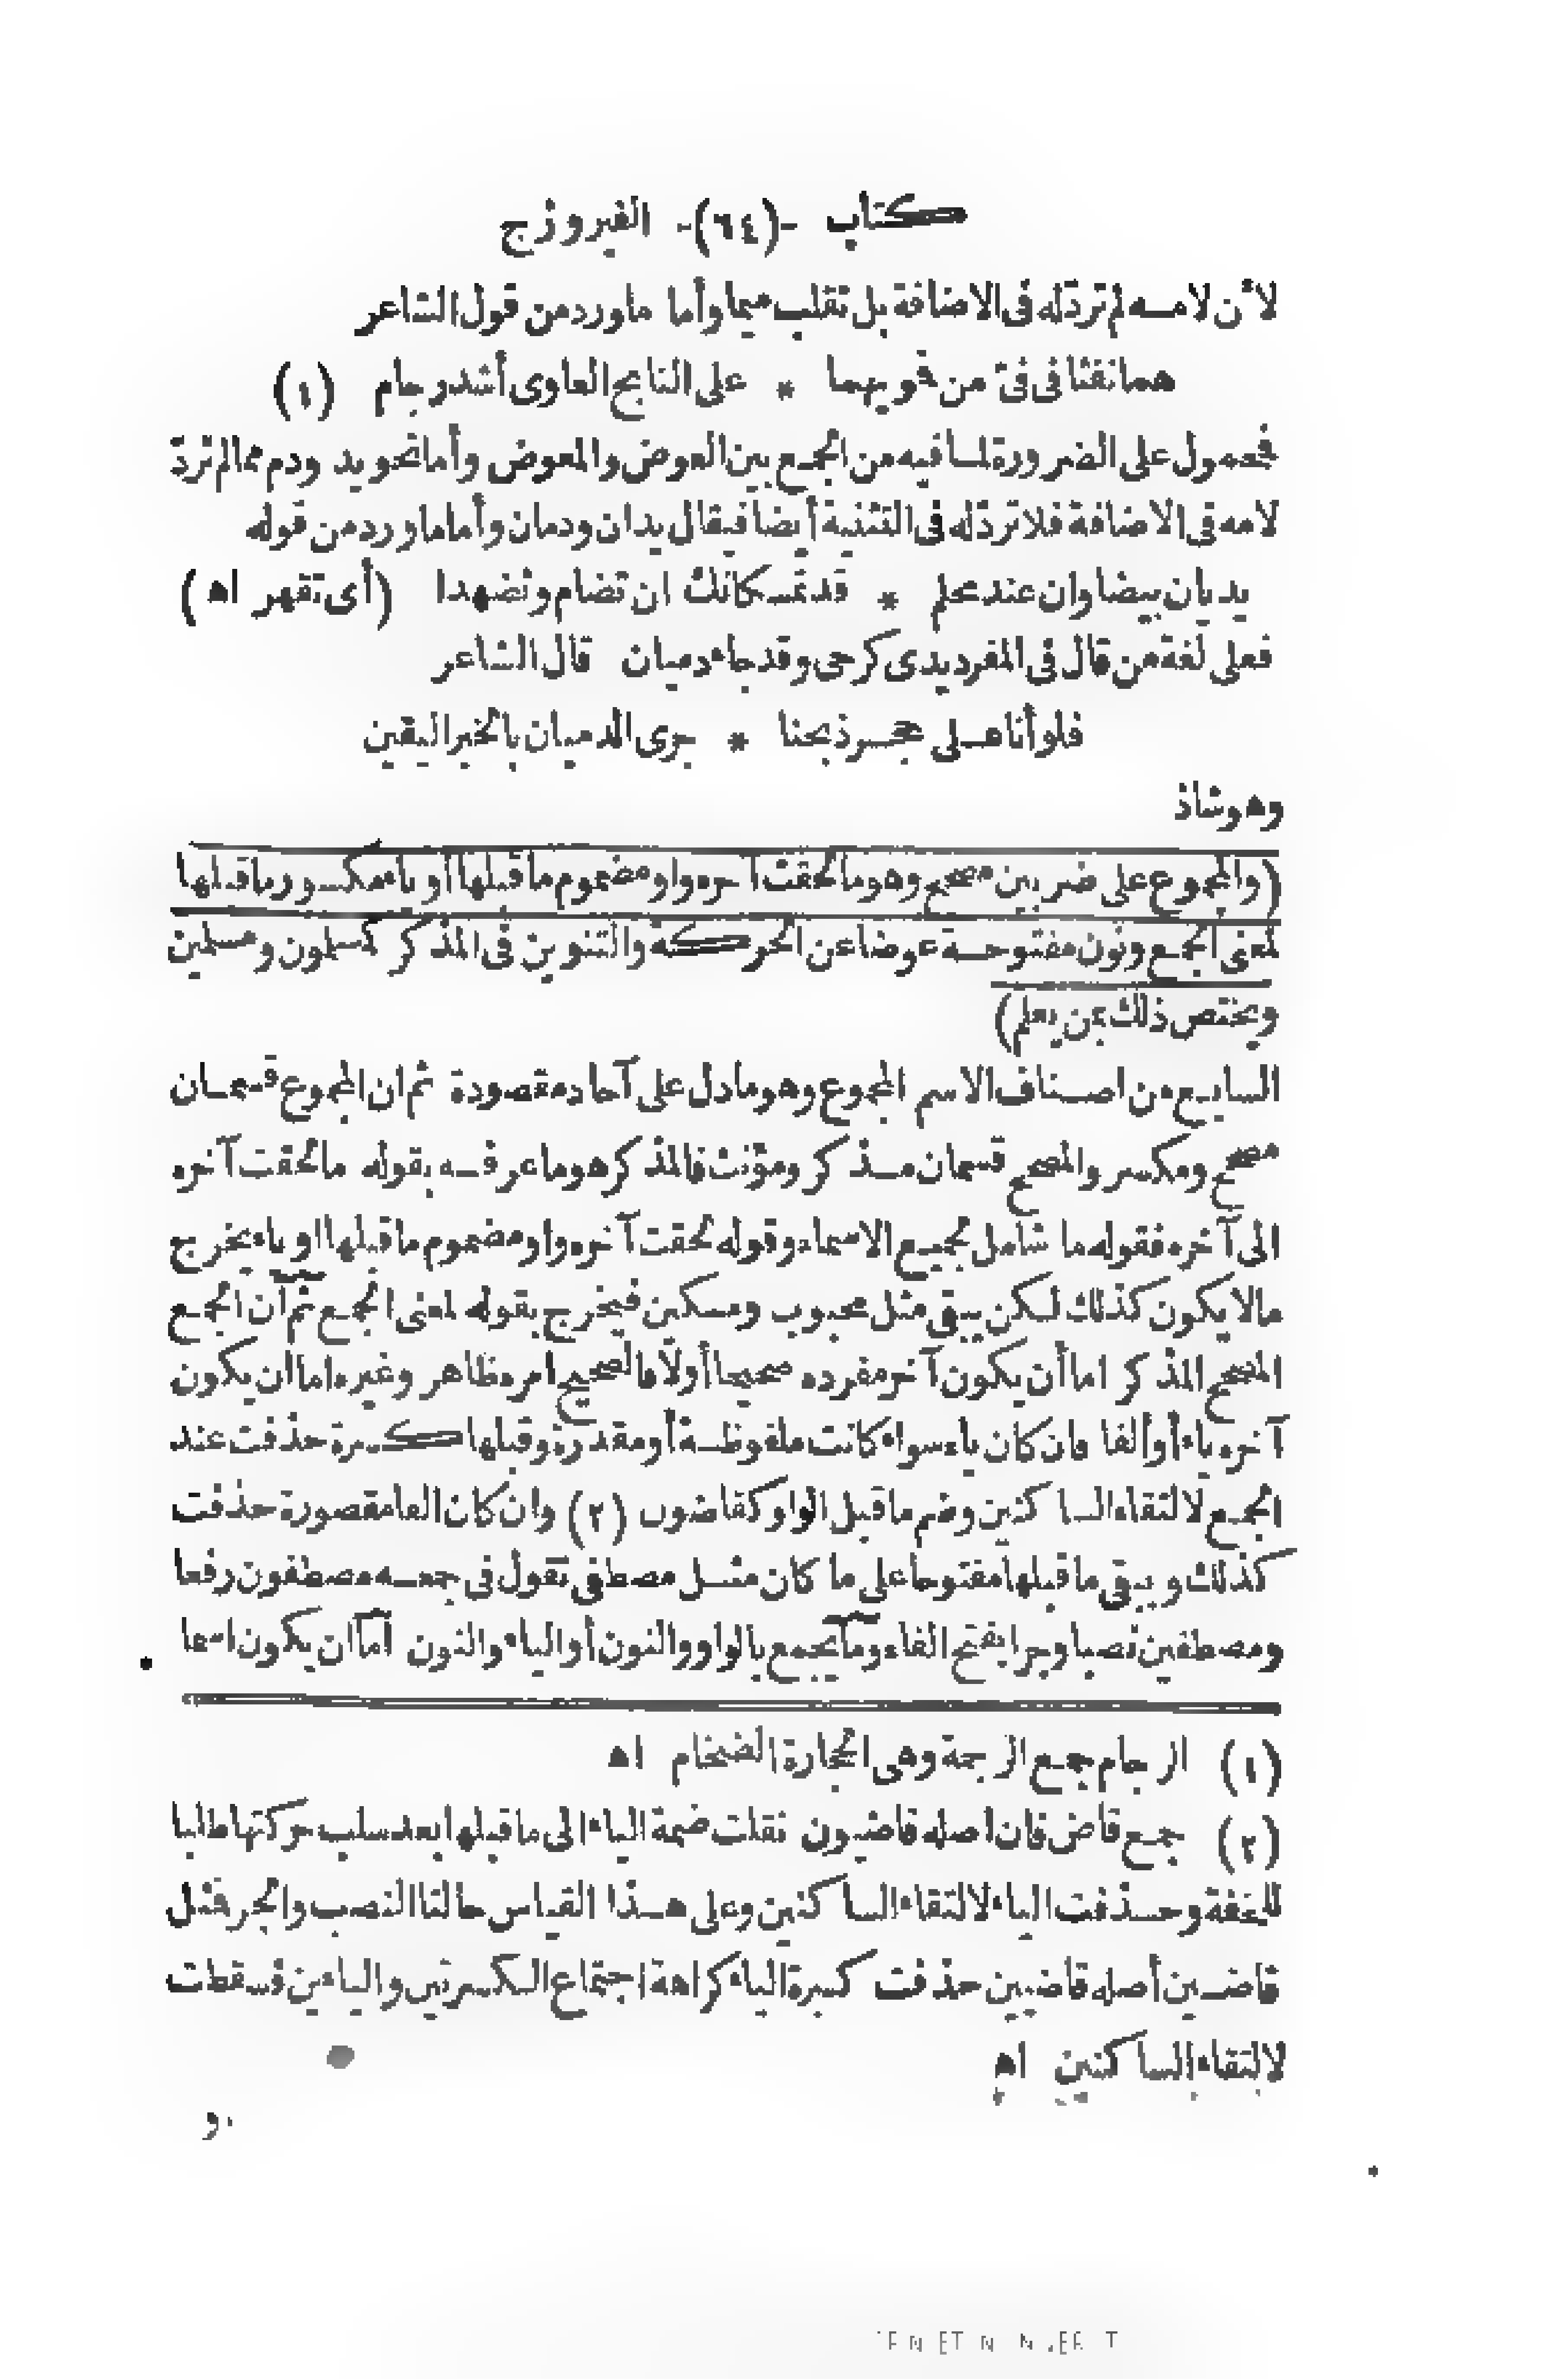 كتاب -(٦٤)- الفيروزج
لأن لامه لم تردّ له فى الاضافة بل تقلب ميما وأما ماورد من قول الشاعر
همانفثا فى فىّ من فمويهما * على النابح العاوى أشد رجام (١)
فمحمول على الضرورة لما فيه من الجمع بين العوض والمعوض وأما نحو يد ودم مما لم تردّ
لامه فى الاضافة فلا تردّ له فى التثنية أيضا فيقال يدان ودمان وأما ماورد من قوله
يديان بيضاوان عند محلم * قد تمسكانك ان تضام وتضهدا (أى تقهر اه)
فعلى لغة من قال فى المفرد يدى كرحى وقد جاء دميان قال الشاعر
فلو أنا على حجر ذبحنا * جرى الدميان بالخبر اليقين
وهو شاذ
(والمجموع على ضربين مصحح وهو ما لحقت آخره واو مضموم ما قبلها أو ياء مكسور ما قبلها
لمعنى الجمع ونون مفتوحة عوضا عن الحركة والتنوين فى المذكر كمسلمون ومسلمين
ويختص ذلك بمن يعلم)
السابع من اصناف الاسم المجموع وهو مادل على آحاد مقصودة ثم ان المجموع قسمان
مصحح ومكسر والمصحح قسمان مذكر ومؤنث فالمذكر هو ما عرفه بقوله ما لحقت آخره
الى آخره فقوله ما شامل لجميع الاسماء وقوله لحقت آخره واو مضموم ما قبلها او ياء يخرج
مالا يكون كذلك لكن يبقى مثل محبوب ومسكين فيخرج بقوله لمعنى الجمع ثم ان الجمع
المصحح المذكر اما أن يكون آخر مفرده صحيحا أولا فالصحيح امره ظاهر وغيره اما ان يكون
آخره ياء أو ألفا فان كان ياء سواء كانت ملفوظة أو مقدرة وقبلها كسرة حذفت عند
الجمع لالتقاء الساكنين وضم ما قبل الواو كقاضون (٢) وان كان الفا مقصورة حذفت
كذلك ويبقى ما قبلها مفتوحا على ما كان مثل مصطفى تقول فى جمعه مصطفون رفعا
ومصطفين نصبا وجرا بفتح الفاء وما يجمع بالواو والنون أو الياء والنون اما ان يكون اسما
(١) الرجام جمع الرجمة وهى الحجارة الضخام اه
(٢) جمع قاض فان اصله قاضيون نقلت ضمة الياء الى ما قبلها بعد سلب حركتها طلبا
للخفة وحذفت الياء لالتقاء الساكنين وعلى هذا القياس حالتا النصب والجر فمثل
قاضين أصله قاضيين حذفت كسرة الياء كراهة اجتماع الكسرتين والياءين فسقطت
لالتقاء الساكنين اه